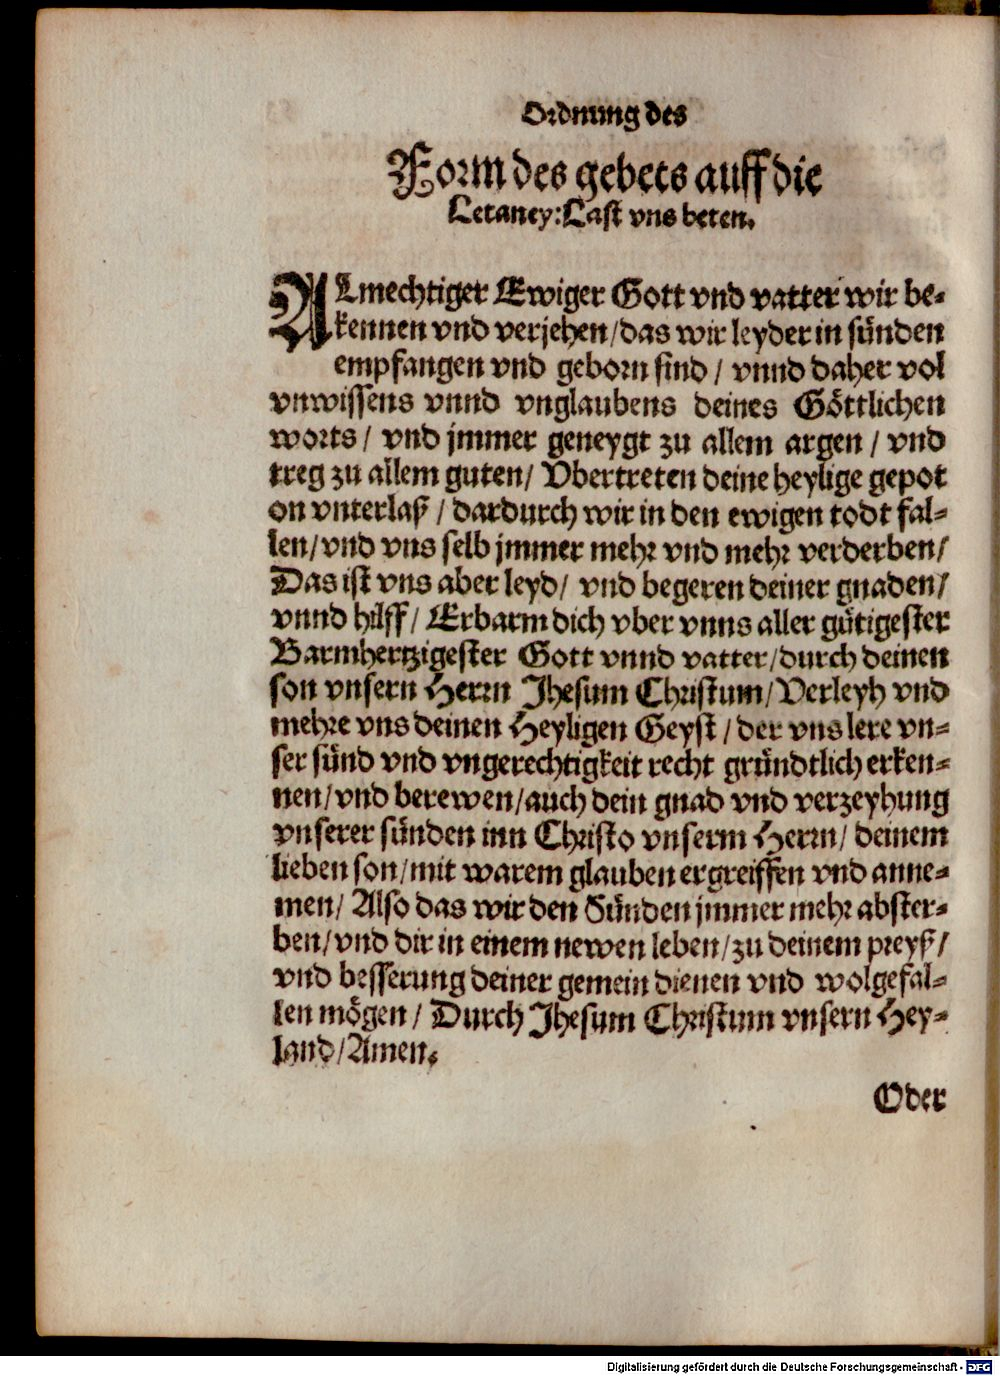 Ordnung des
Form des gebets auff die
Letaney: Last vns beten.
ALmechtiger Ewiger Gott vnd vatter wir be-
kennen vnd verjehen/das wir leyder in sünden
empfangen vnd geborn sind / vnnd daher vol
vnwissens vnnd vnglaubens deines Göttlichen
worts/ vnd jmmer geneygt zu allem argen / vnd
treg zu allem guten/ Vbertreten deine heylige gepot
on vnterlaß / dardurch wir in den ewigen todt fal-
len/vnd vns selb jmmer mehr vnd mehr verderben/
Das ist vns aber leyd/ vnd begeren deiner gnaden/
vnnd hilff/ Erbarm dich vber vnns aller gütigester
Barmhertzigester Gott vnnd vatter/durch deinen
son vnsern Herrn Jhesum Christum/ Verleyh vnd
mehre vns deinen Heyligen Geyst / der vns lere vn-
ser sünd vnd vngerechtigkeit recht gründtlich erken-
nen/vnd berewen/auch dein gnad vnd verzeyhung
vnserer sünden inn Christo vnserm Herrn/ deinem
lieben son/mit warem glauben ergreiffen vnd anne-
men/ Also das wir den Sünden jmmer mehr abster-
ben/vnd dir in einem newen leben/zu deinem preyß/
vnd besserung deiner gemein dienen vnd wolgefal-
len mögen / Durch Jhesum Christum vnsern Hey-
land/Amen.
Oder
Digitalisierung gefördert durch die Deutsche Forschungsgemeinschaft - DFG